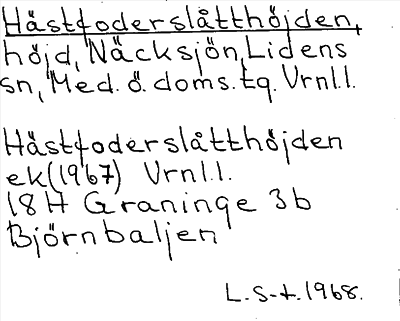 Hästfoderslåtthöjden,
höjd, Näcksjön, Lidens
sn, Med. ö. doms. tg. Vrnl.l.
Hästfoderslåtthöjden
ek (1967) Vrnl.l.
18H Graninge 3b
Björnbaljen
L. S-t. 1968.